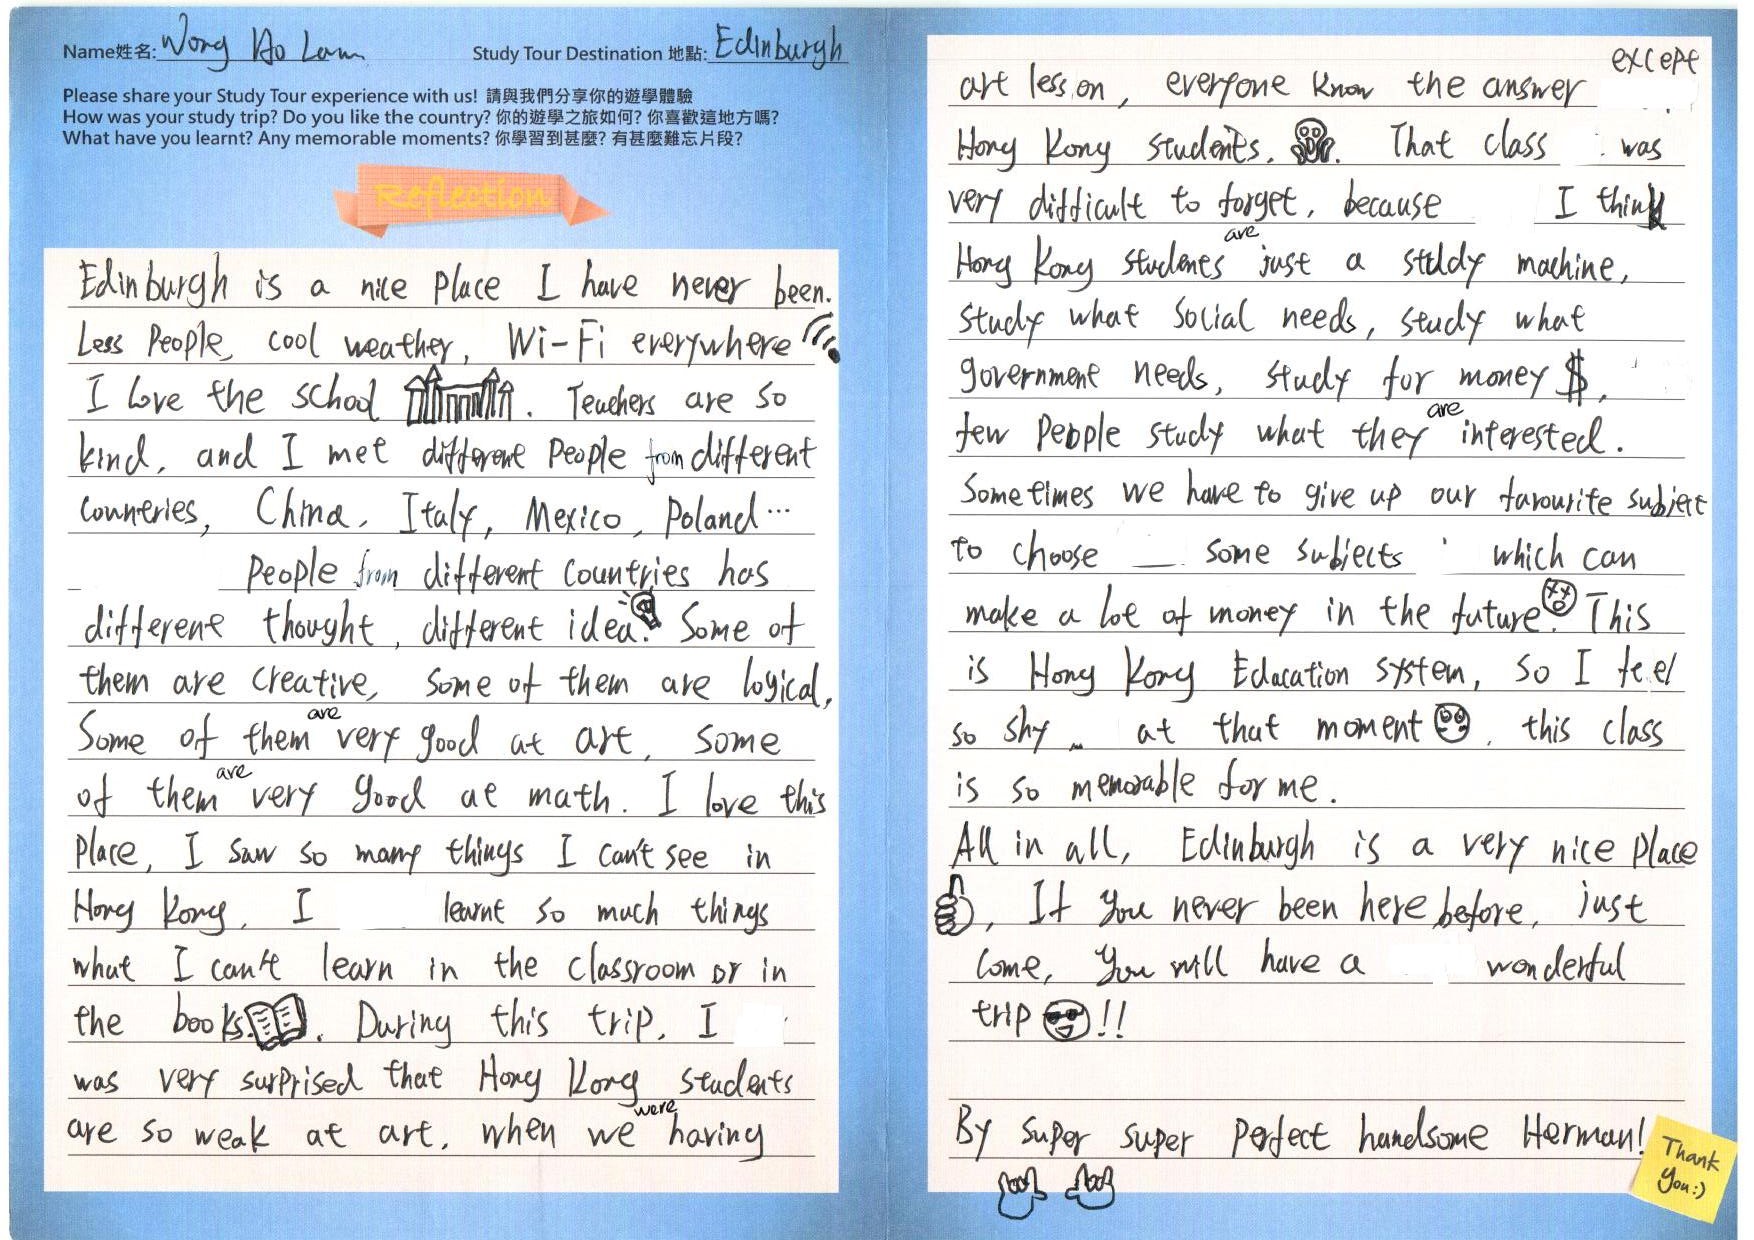 Name姓名: Wong Ho Lam Study Tour Destination 地點: Edinburgh
Please share your Study Tour experience with us! 請與我們分享你的遊學體驗
How was your study trip? Do you like the country? 你的遊學之旅如何? 你喜歡這地方嗎?
What have you learnt? Any memorable moments? 你學習到甚麼? 有甚麼難忘片段?
Reflection
Edinburgh is a nice place I have never been.
Less People, cool weather, Wi-Fi everywhere
I love the school. Teachers are so
kind, and I met different People from different
countries, China, Italy, Mexico, Poland...
People from different countries has
different thought, different idea. Some of
them are creative, some of them are logical,
Some of them are very good at art, some
of them are very good at math. I love this
Place, I saw so many things I can't see in
Hong Kong, I learnt so much things
what I can't learn in the classroom or in
the books. During this trip, I
was very surprised that Hong Kong students
are so weak at art, when we were having
art lesson, everyone know the answer except
Hong Kong students. That class was
very difficult to forget, because I think
Hong Kong students are just a study machine,
study what social needs, study what
government needs, study for money $,
few People study what they are interested.
Sometimes we have to give up our favourite subject
to choose some subjects which can
make a lot of money in the future. This
is Hong Kong Education system, so I feel
so shy at that moment, this class
is so memorable for me.
All in all, Edinburgh is a very nice place
, If you never been here before, just
come, you will have a wonderful
trip !!
By super super perfect handsome Herman!
Thank
You:)